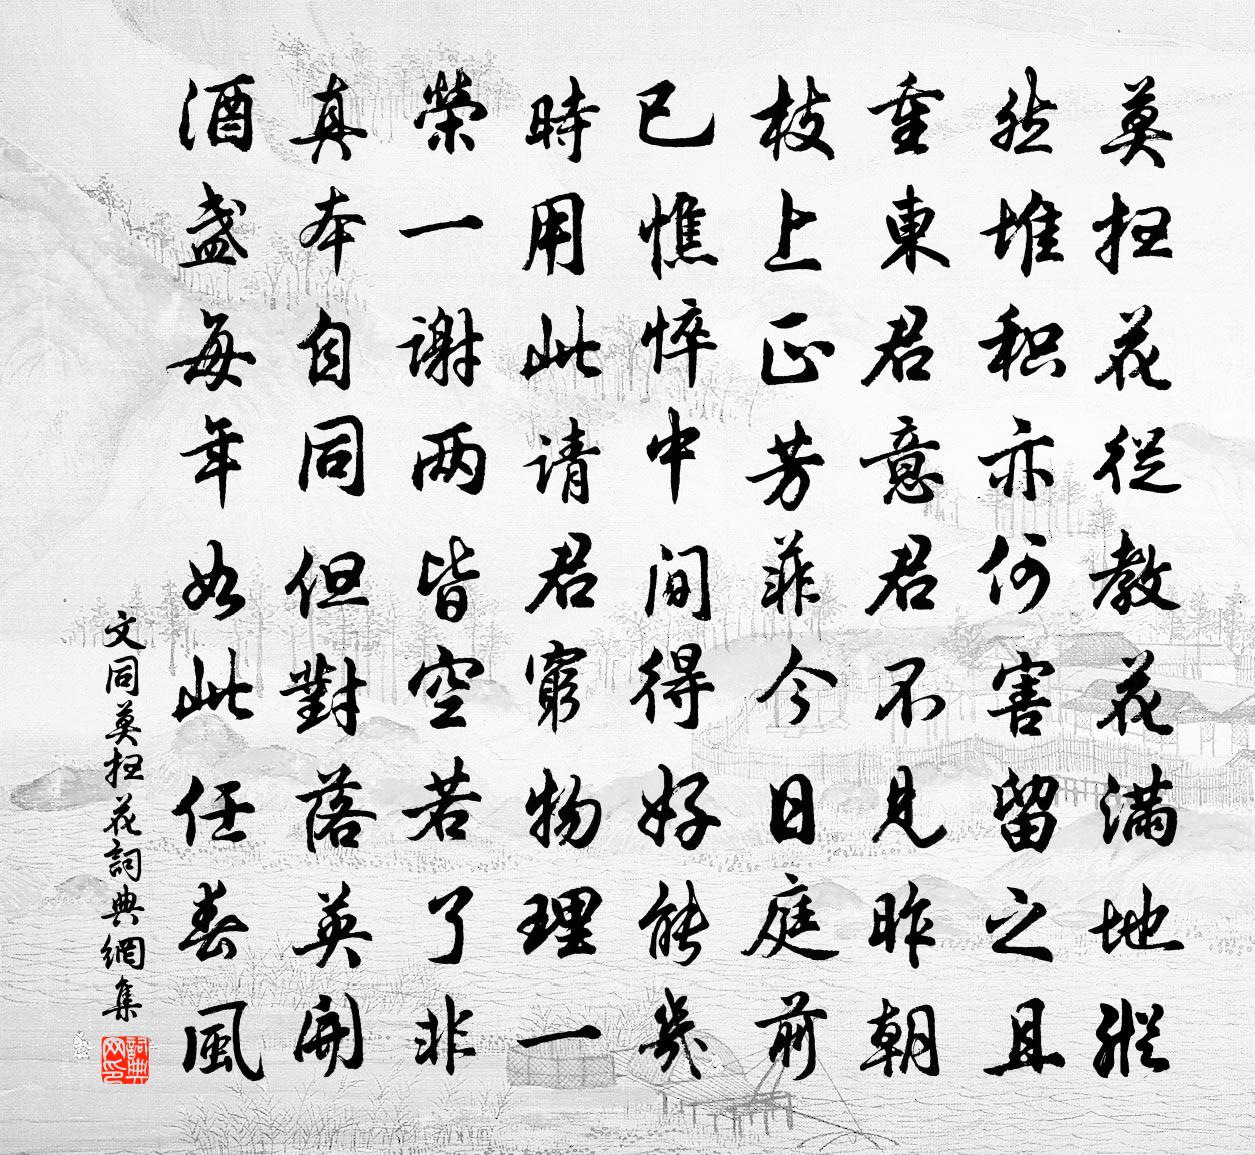 莫扫花從教花滿地縱
然堆积亦何害留之且
重東君意君不見昨朝
枝上正芳菲今日庭前
已憔悴中間得好能幾
時用此请君窮物理一
榮一谢两皆空若了非
真本自同但對落英開
酒盏每年如此任春風
文同莫扫花詞典網集
詞典网印